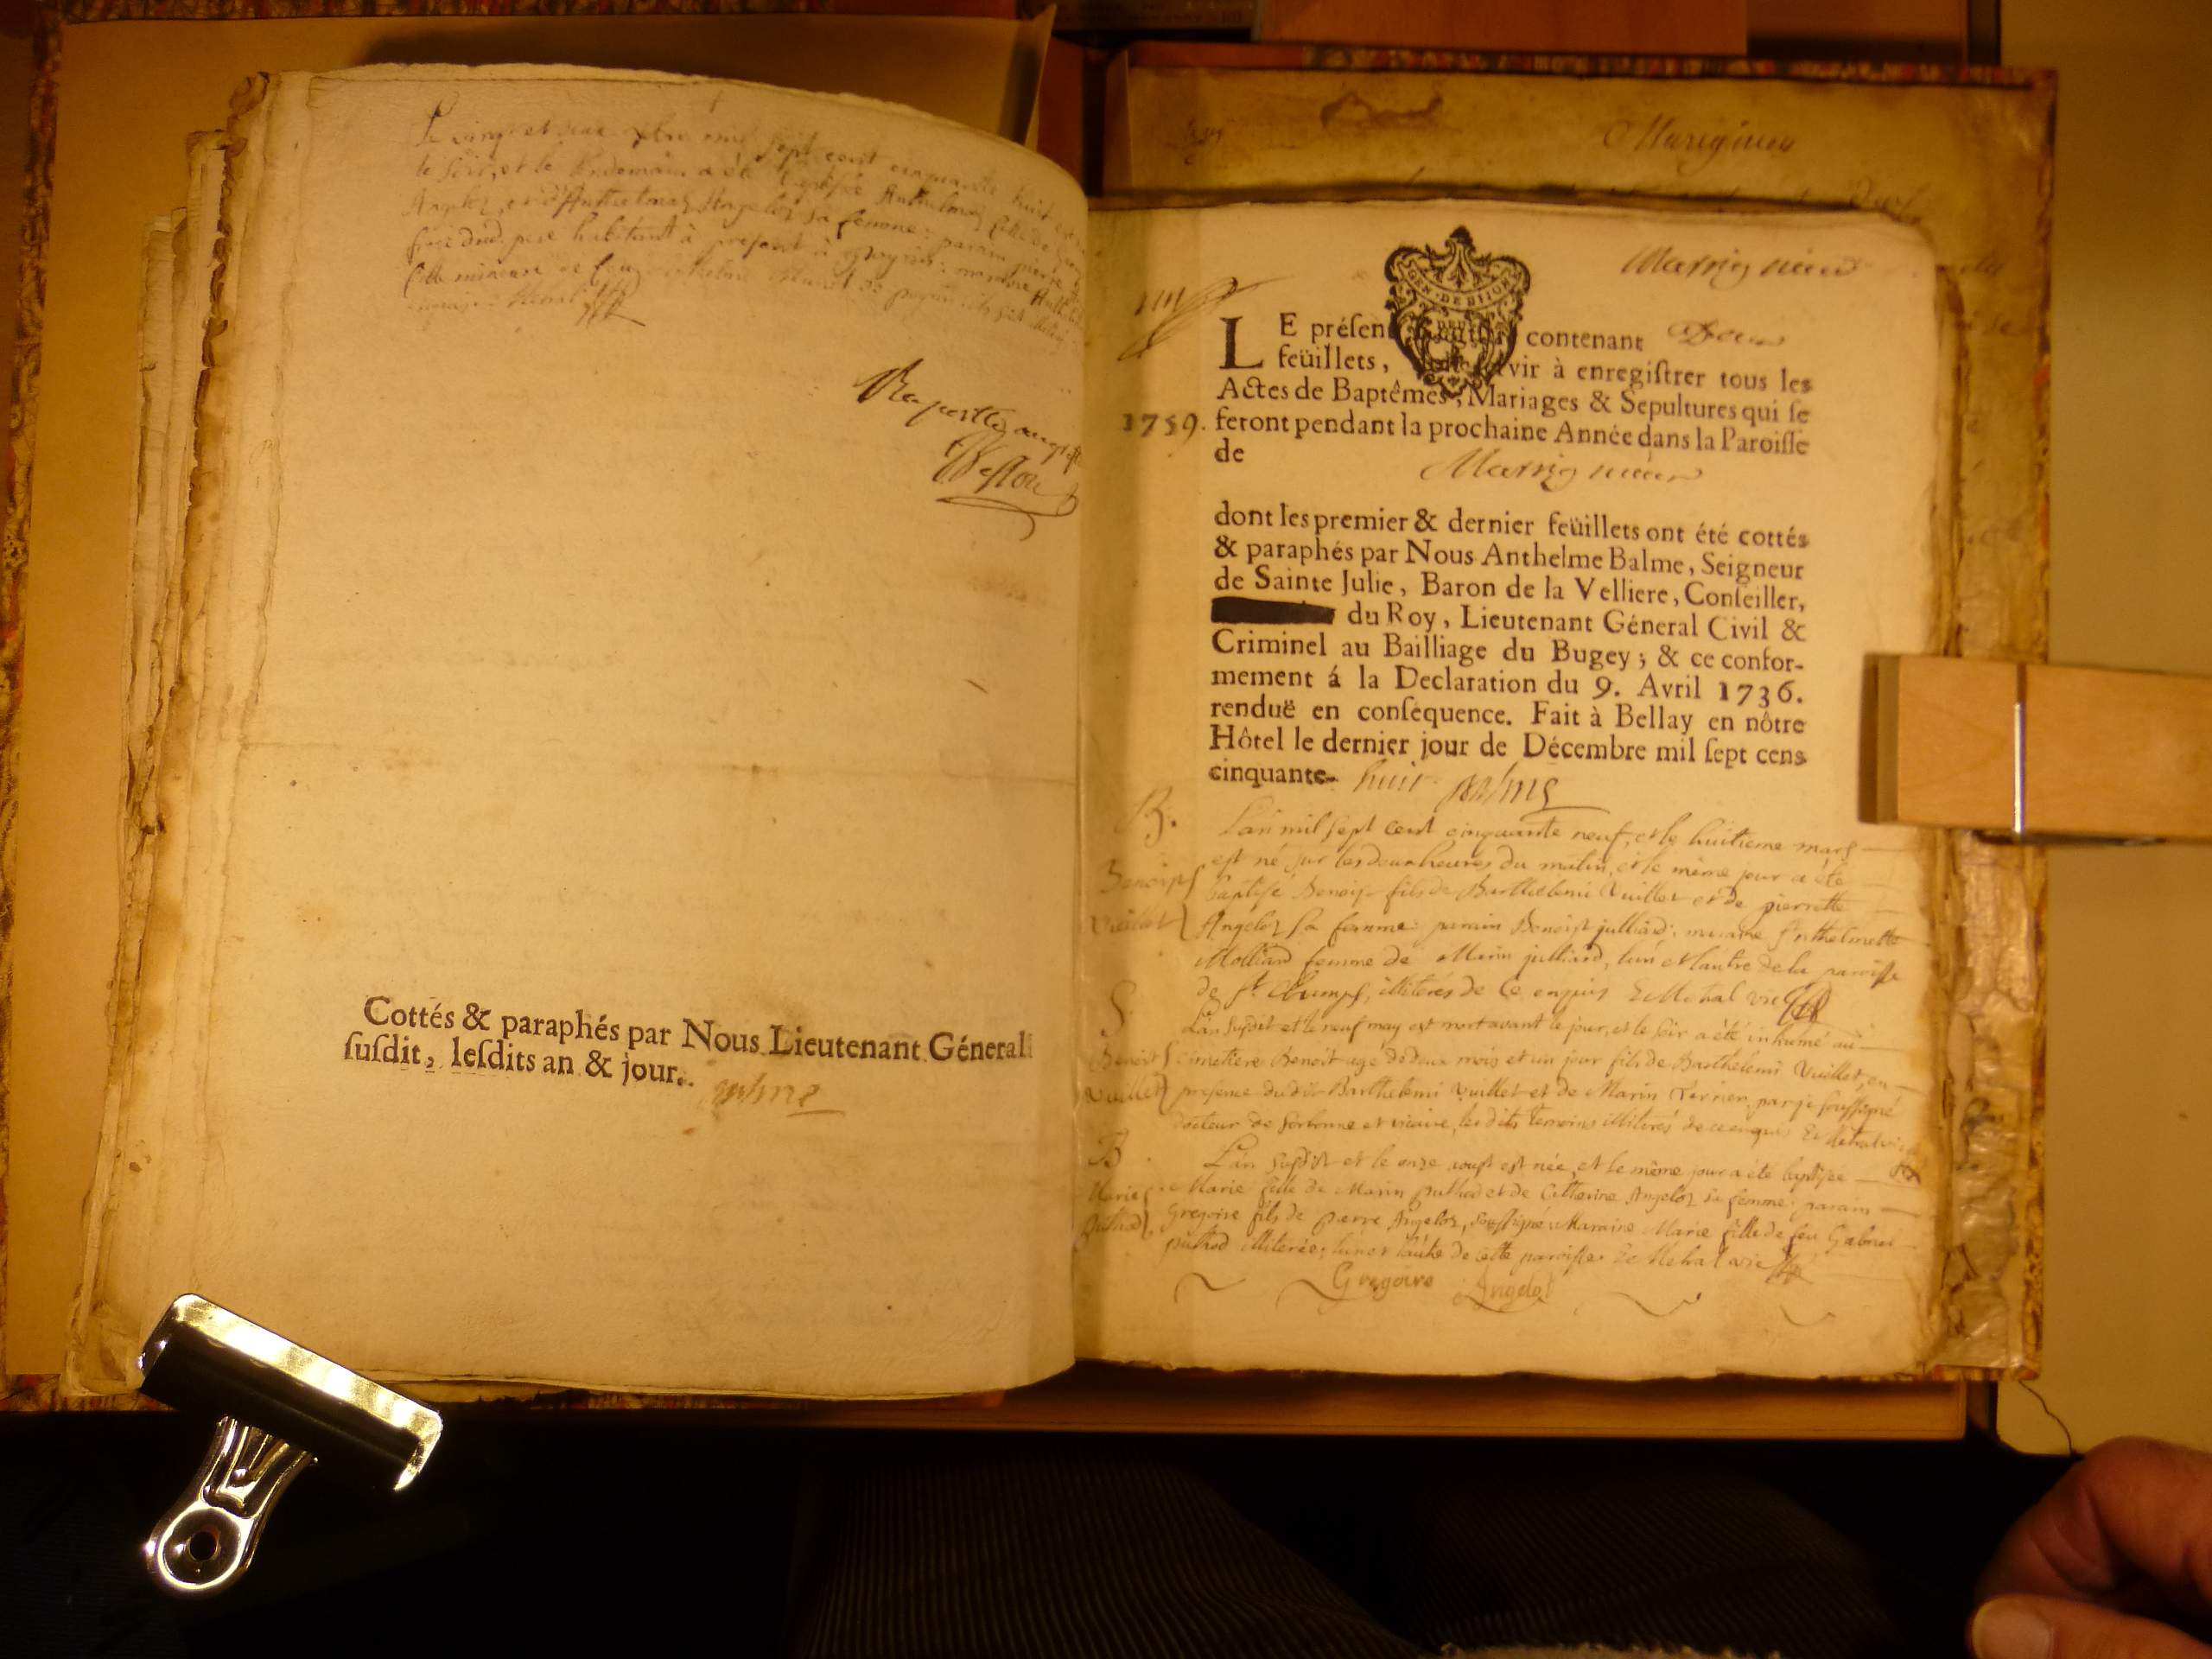 Le vingt et deux mil sept cent cinquante huit est
le soir, et le lendemain a été baptisée Anthelmaz fille de
Angeloz, et d'Anthelmaz Angeloz sa femme: parain pierre
habitant à present à maraine
fille mineure de feu Anthelme
Cottés & paraphés par Nous Lieutenant Géneral
ſuſdit, leſdits an & jour.
Balme
Marignieu
Marrignieu
LE préſent Regiſtre contenant Deux
feüillets, ſervir à enregiſtrer tous les
Actes de Baptêmes, Mariages & Sepultures qui ſe
1759. feront pendant la prochaine Année dans la Paroiſſe
de Marrignieu
GEN. DE DIJON
dont les premier & dernier feüillets ont été cottés
& paraphés par Nous Anthelme Balme, Seigneur
de Sainte Julie, Baron de la Velliere, Conſeiller,
du Roy, Lieutenant Géneral Civil &
Criminel au Bailliage du Bugey; & ce confor-
mement á la Declaration du 9. Avril 1736.
renduë en conſéquence. Fait à Bellay en nôtre
Hôtel le dernier jour de Décembre mil ſept cens
cinquante- huit Balme
B.
Benoist
Vuillet
L'an mil sept cent cinquante neuf, et le huitieme mars
est né sur les deux heures du matin, et le même jour a été
baptisé Benoist fils de Barthelemi Vuillet et de pierrette
Angeloz sa femme: parain Benoist julliard: maraine Anthelmette
Molliard femme de Marin julliard, l'un et l'autre de la paroisse
de st. Champs, illiterés de ce enquis De Metral vic
S.
Benoist
Vuillet
L'an susdit et le neuf may est mort avant le jour, et le soir a été inhumé au
cimetiere Benoit agé de deux mois et un jour fils de Barthelemi Vuillet, en
presence dudit Barthelemi Vuillet et de Marin Terrier, par je soussigné
docteur de sorbonne et vicaire, les dits temoins illiterés de ce enquis De Metral vic
B
Marie
puthod
L'an susdit et le onze aoust est née, et le même jour a été baptisée
Marie fille de Marin puthod et de Catherine Angeloz sa femme: parain
Gregoire fils de pierre Angeloz, soussigné: Maraine Marie fille de feu Gabriel
puthod illiterée; l'un et l'autre de cette paroisse De Metral vic
Gregoire Angelot